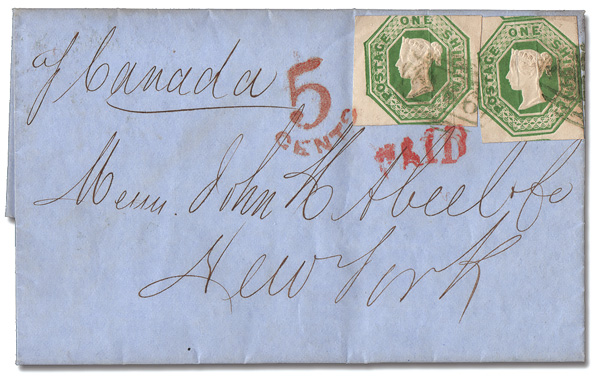 POSTAGE ONE SHILLING
POSTAGE ONE SHILLING
p Canada
5
CENTS
PAID
Messrs. John H Abeel & Co
New York